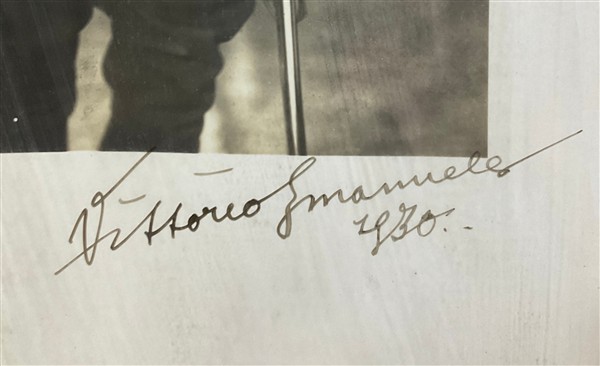 Vittorio Emanuele
1930.